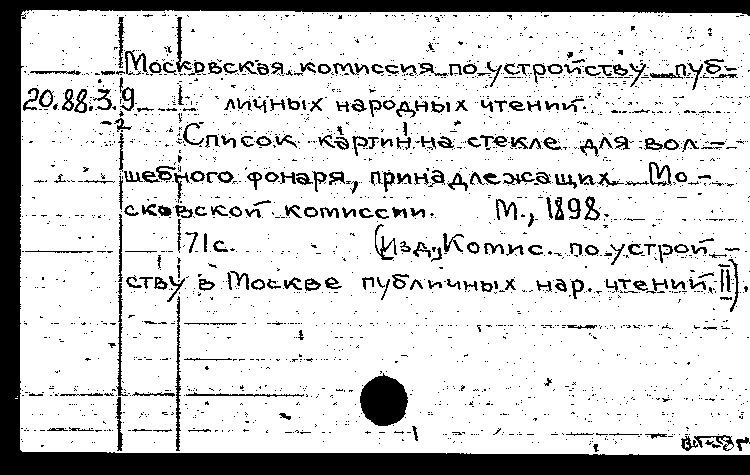 Московская комиссия по устройству пуб-
20.88.3.9. личных народных чтений.
-2
Список картин на стекле для вол-
шебного фонаря, принадлежащих Мо-
сковской комиссии. М., 1898.
71с. (Изд., Комис. по устрой-
ству в Москве публичных нар. чтений. II).